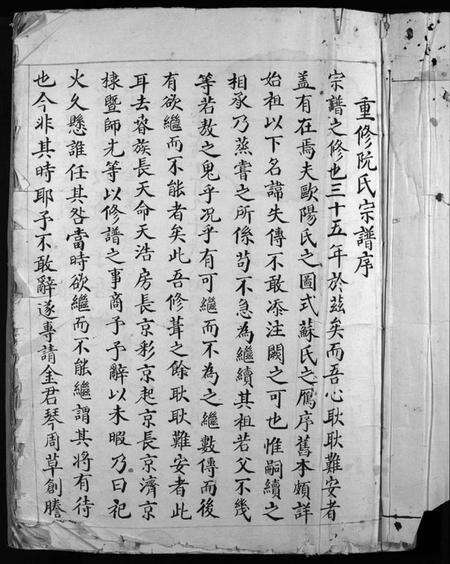 重修阮氏宗譜序
宗譜之修也三十五年於茲矣而吾心耿耿難安者
盖有在焉夫歐陽氏之圖式蘇氏之鴈序舊本頗詳
始祖以下名諱失傳不敢添注闕之可也惟嗣續之
相承乃蒸嘗之所係苟不急為繼續其祖若父不幾
等若敖之鬼乎况乎有可繼而不為之繼數傳而後
有欲繼而不能者矣此吾修葺之餘耿耿難安者此
耳去春族長天命天浩房長京彩京起京長京濟京
棣暨師尤等以修譜之事商予予辭以未暇乃曰祀
火久懸誰任其咎當時欲繼而不能繼謂其將有待
也今非其時耶予不敢辭遂專請金君琴周草創謄